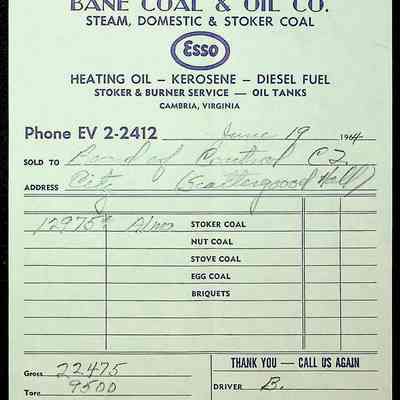 BANE COAL & OIL CO.
STEAM, DOMESTIC & STOKER COAL
Esso
HEATING OIL — KEROSENE — DIESEL FUEL
STOKER & BURNER SERVICE — OIL TANKS
CAMBRIA, VIRGINIA
Phone EV 2-2412 June 19 1964
SOLD TO of Control
ADDRESS City (Scattergood Hall)
12975# STOKER COAL
NUT COAL
STOVE COAL
EGG COAL
BRIQUETS
Gross 22475
Tare 9500
THANK YOU — CALL US AGAIN
DRIVER B.